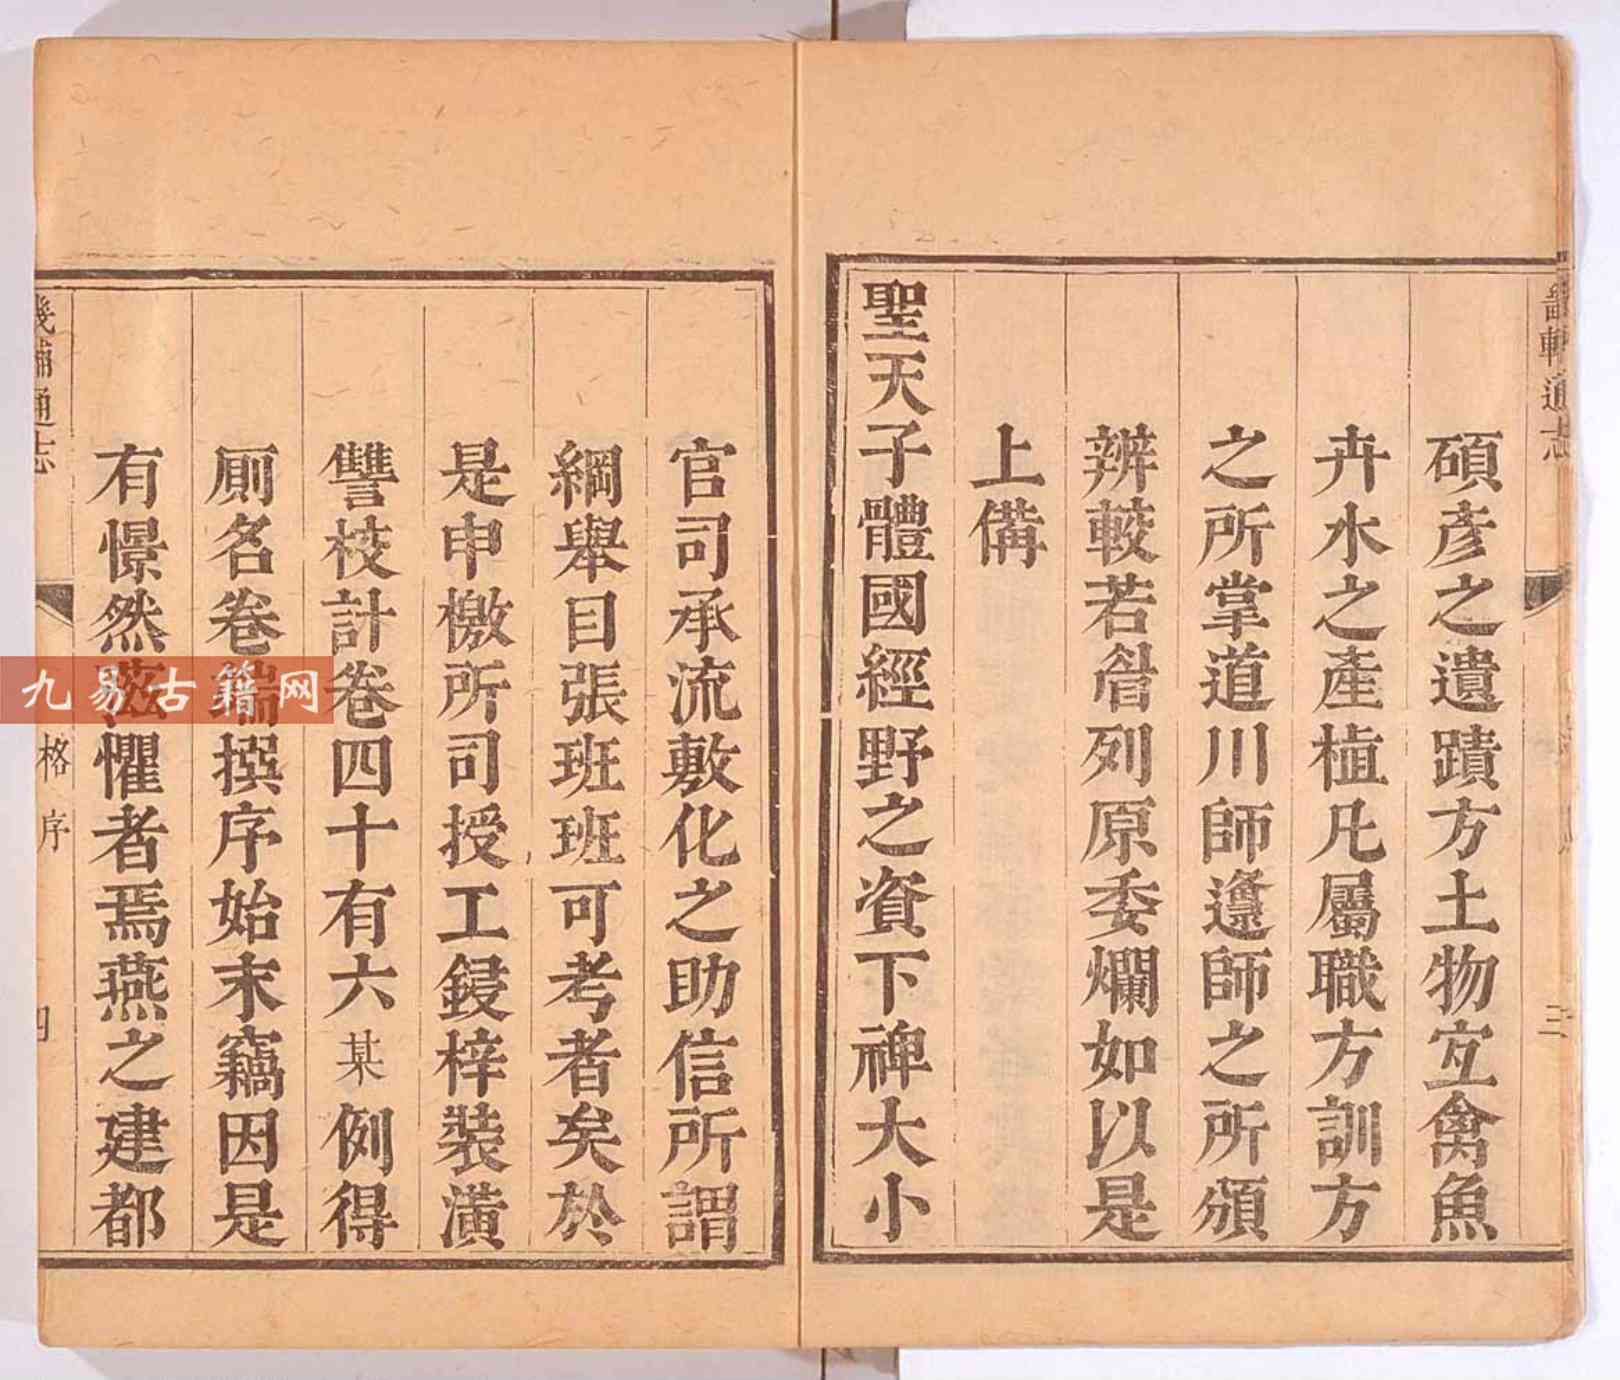 畿輔通志
三
碩彥之遺蹟方土物宐禽魚
卉水之產植凡屬職方訓方
之所掌道川師邍師之所頒
辨較若眉列原委爛如以是
上備
聖天子體國經野之資下裨大小
官司承流敷化之助信所謂
綱舉目張班班可考者矣於
是申檄所司授工鋟梓裝潢
讐校計卷四十有六某例得
厠名卷端撰序始末竊因是
有憬然滋懼者焉燕之建都
畿輔通志
格序
四
九易古籍网